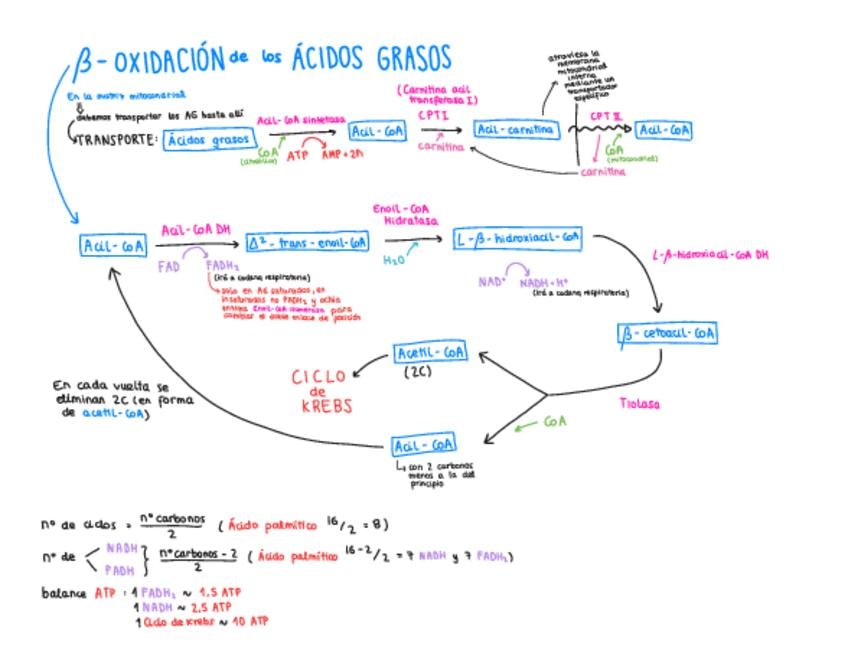 β-OXIDACIÓN de los ÁCIDOS GRASOS
En la matriz mitocondrial
debemos transportar los AG hasta allí
TRANSPORTE:
Ácidos grasos
Acil-CoA sintetasa
CoA
ATP
AMP+2Pi
Acil-CoA
(Carnitina acil
transferasa I)
CPTI
carnitina
Acil-carnitina
atraviesa la
membrana
mitocondrial
interna
mediante un
transportador
específico
CPT II
CoA
(mitocondrial)
carnitina
Acil-CoA
Acil-CoA
Acil-CoA DH
FAD
FADH₂
(irá a cadena respiratoria)
solo en AG saturados, en
insaturados no FADH₂ y
cambiar el doble enlace de posición
Δ²-trans-enoil-CoA
Enoil-CoA
Hidratasa
H₂O
L-β-hidroxiacil-CoA
L-β-hidroxiacil-CoA DH
NAD⁺
NADH+H⁺
(irá a cadena respiratoria)
β-cetoacil-CoA
Tiolasa
CoA
Acetil-CoA
(2C)
CICLO
de
KREBS
Acil-CoA
con 2 carbonos
menos a la del
principio
En cada vuelta se
eliminan 2C (en forma
de acetil-CoA)
nº de ciclos = nº carbonos / 2 (Ácido palmítico 16/2 = 8)
nº de NADH FADH } nº carbonos - 2 / 2 (Ácido palmítico 16-2/2 = 7 NADH y 7 FADH₂)
balance ATP: 1 FADH₂ ~ 1,5 ATP
1 NADH ~ 2,5 ATP
1 Ciclo de Krebs ~ 10 ATP